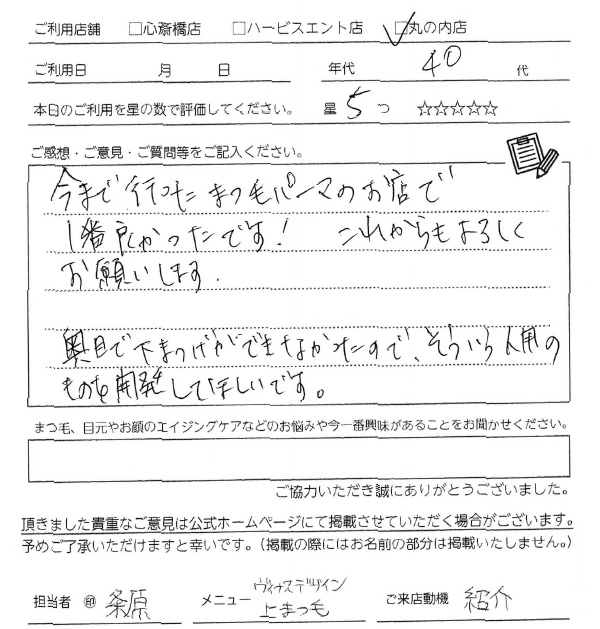 ご利用店舗 □心斎橋店 □ハービスエント店 ☑丸の内店
ご利用日 月 日 年代 40 代
本日のご利用を星の数で評価してください。 星 5 つ ☆☆☆☆☆
ご感想・ご意見・ご質問等をご記入ください。
今まで行ったまつ毛パーマのお店で
1番良かったです! これからもよろしく
お願いします.
奥目で下まつげができなかったので、そういう人用の
ものを開発してほしいです。
まつ毛、目元やお顔のエイジングケアなどのお悩みや今一番興味があることをお聞かせください。
ご協力いただき誠にありがとうございました。
頂きました貴重なご意見は公式ホームページにて掲載させていただく場合がございます。
予めご了承いただけますと幸いです。(掲載の際にはお名前の部分は掲載いたしません。)
担当者 ㊞ 条原 メニュー ヴィナスデザイン 上まつ毛 ご来店動機 紹介